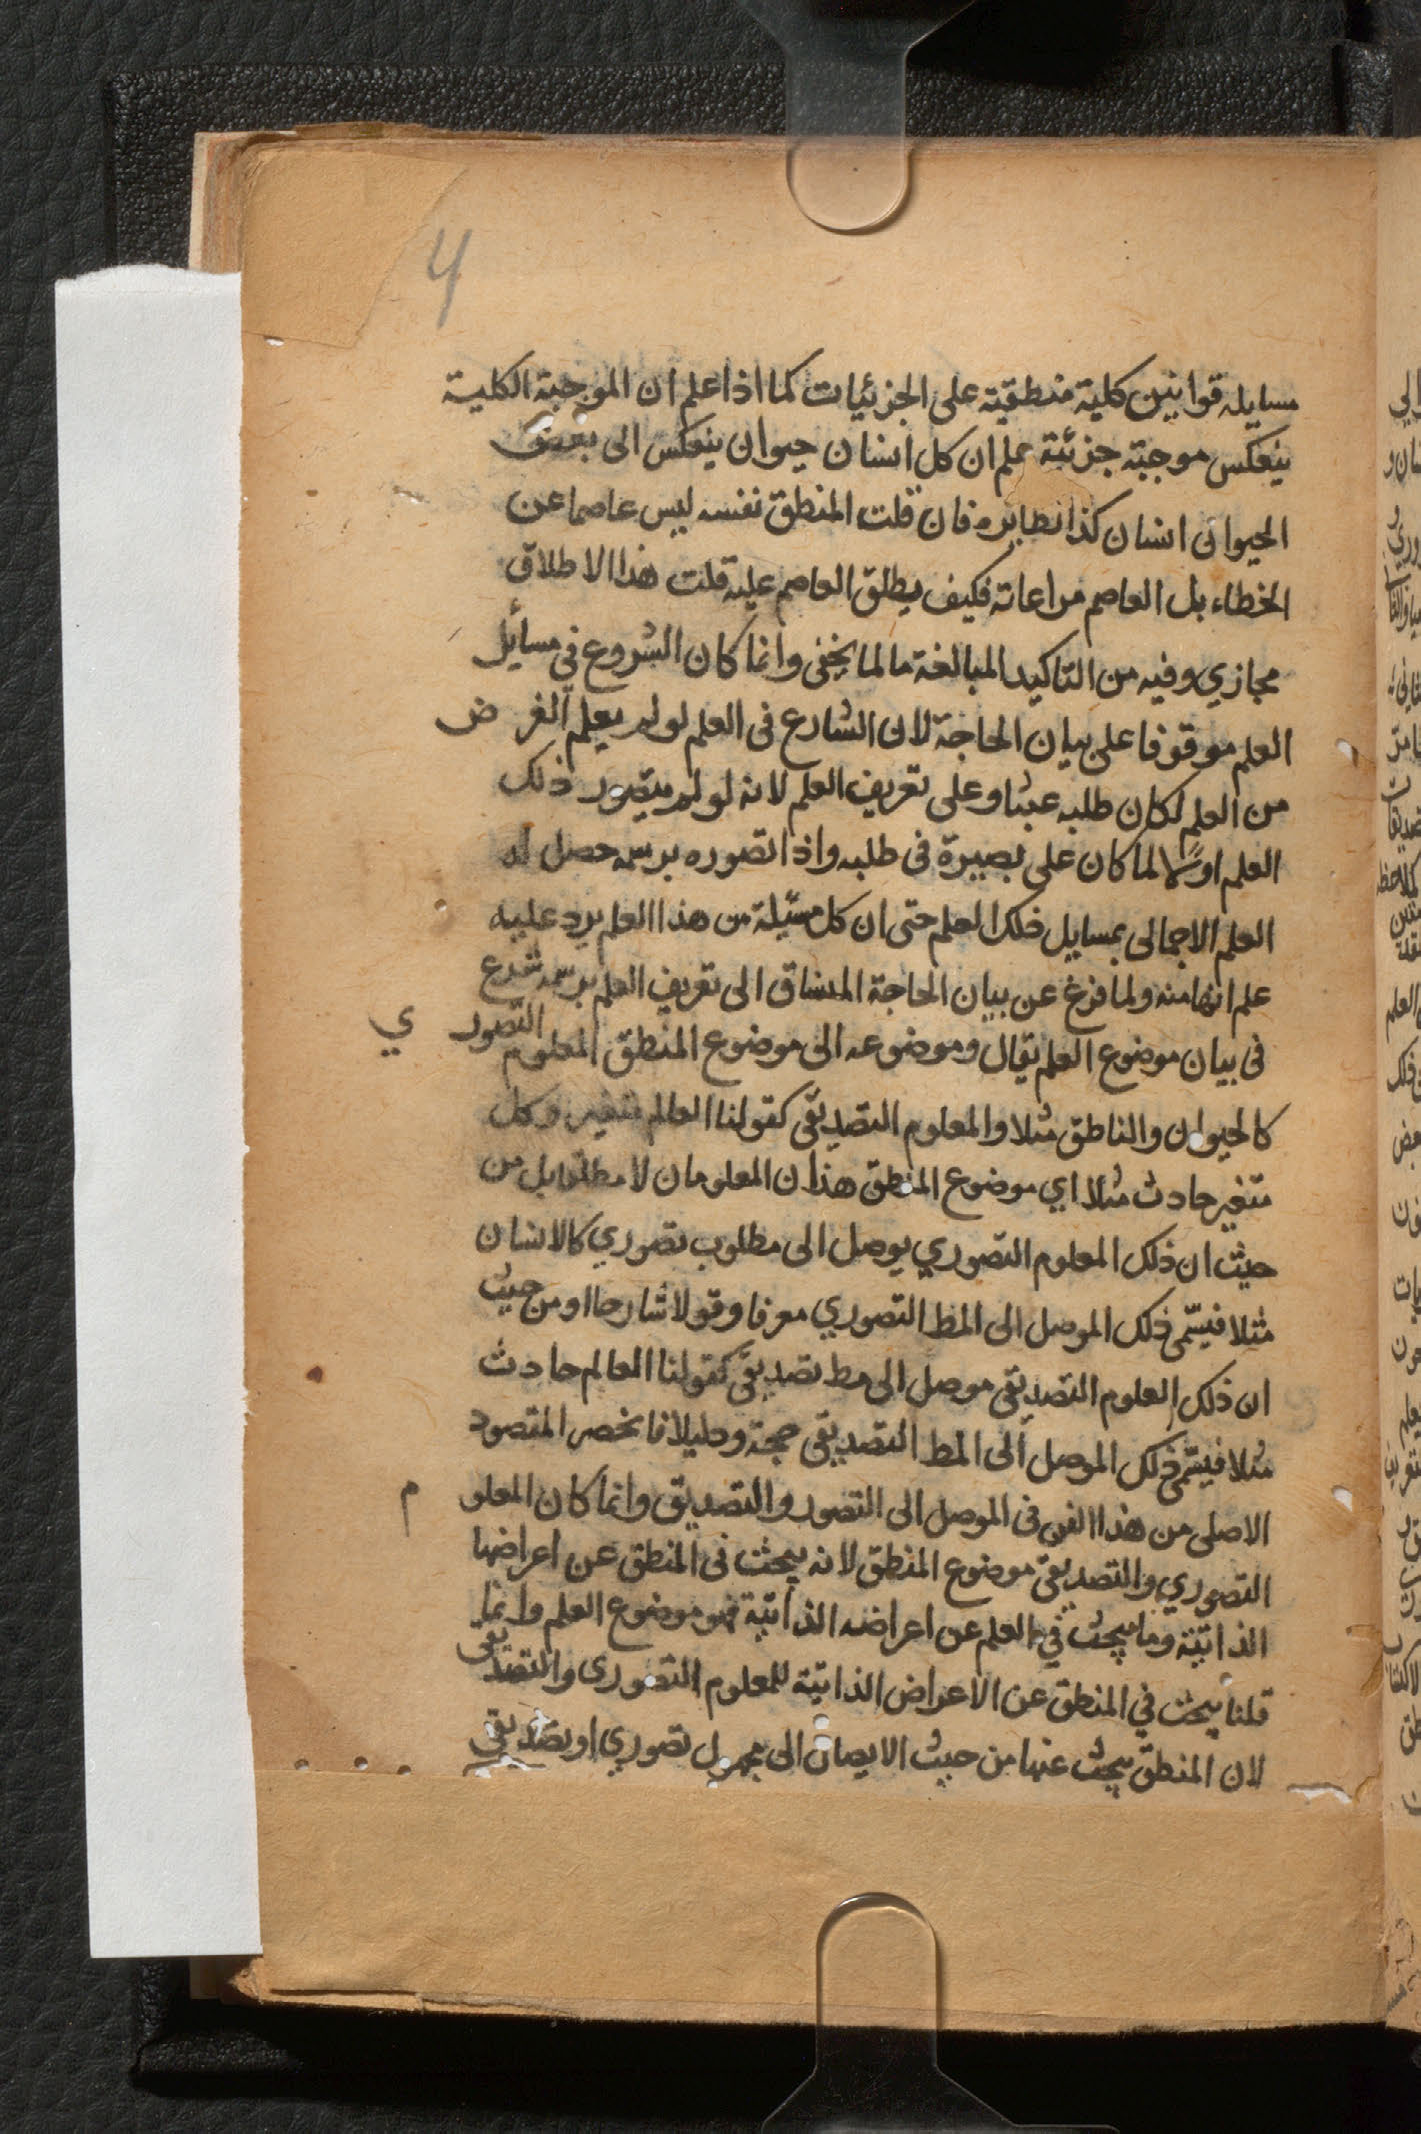 4
مسايله قوانين كلية منطقية على الجزئيات كما اذا علم ان الموجبة الكلية
ينعكس موجبة جزئية علم ان كل انسان حيوان ينعكس الى بعض
الحيوان انسان كذا نظايره فان قلت المنطق نفسه ليس عاصما عن
الخطاء بل العاصم مراعاته فكيف يطلق العاصم عليه قلت هذا الاطلاق
مجازي وفيه من التاكيد المبالغة مالما يخفى وانما كان الشروع في مسائل
العلم موقوفا على بيان الحاجة لان الشارع فى العلم لو لم يعلم الغرض
من العلم لكان طلبه عبثا وعلى تعريف العلم لانه لو لم يتصور ذلك
العلم اولا لما كان على بصيرة فى طلبه واذا تصوره برسمه حصل له
العلم الاجمالى بمسايل ذلك العلم حتى ان كل مسئلة من هذا العلم يرد عليه
علم انها منه ولما فرغ عن بيان الحاجة المنساق الى تعريف العلم برسمه شرع
فى بيان موضوع العلم يقال وموضوعه الى موضوع المنطق المعلوم التصوري
كالحيوان والناطق مثلا والمعلوم التصديقى كقولنا العالم متغير وكل
متغير حادث مثلا اي موضوع المنطق هذان المعلومان لا مطلقا بل من
حيث ان ذلك المعلوم التصوري يوصل الى مطلوب تصوري كالانسان
مثلا فيسمى ذلك الموصل الى المط التصوري معرفا وقولا شارحا او من حيث
ان ذلك العلوم التصديقى موصل الى مط تصديقى كقولنا العالم حادث
مثلا فيسمى ذلك الموصل الى المط التصديقى حجة ودليلا فانحصر المقصود
الاصلى من هذا الفن فى الموصل الى التصور والتصديق وانما كان المعلوم
التصوري والتصديقى موضوع المنطق لانه يبحث فى المنطق عن اعراضها
الذاتية وما يبحث في العلم عن اعراضه الذاتية فهو موضوع العلم وانما
قلنا يبحث في المنطق عن الاعراض الذاتية للمعلوم التصورى والتصديقى
لان المنطق يبحث عنها من حيث الايصال الى مجهول تصوري او تصديقى